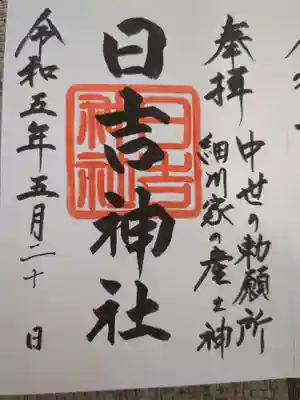 奉拝
中世の勅願所
細川家の産土神
日吉神社
日吉神社
令和五年五月二十日